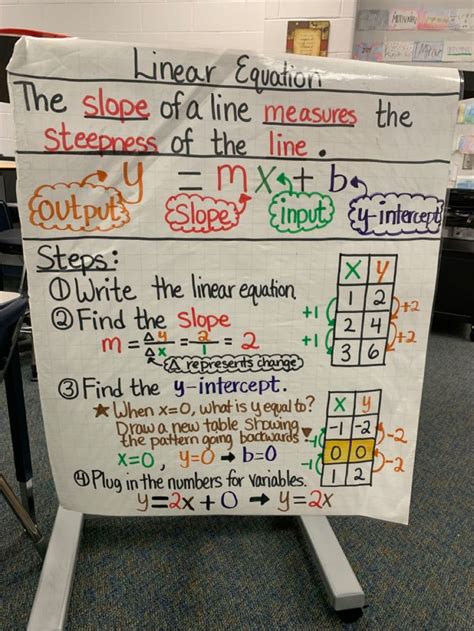 Linear Equation
The slope of a line measures the
steepness of the line.
y = mx + b
output slope input y-intercept
Steps:
① Write the linear equation
② Find the slope
m = Δy/Δx = 2/1 = 2
Δ represents change
x y
1 2
2 4
3 6
+1 +2
+1 +2
③ Find the y-intercept.
★ When x=0, what is y equal to?
Draw a new table showing
the pattern going backwards!
x=0, y=0 → b=0
x y
-1 -2
0 0
1 2
-2
-1 -2
④ Plug in the numbers for variables.
y=2x+0 → y=2x